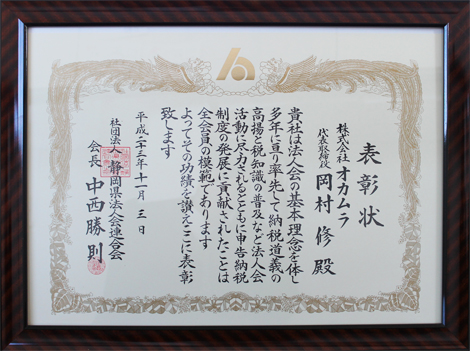 表彰状
株式会社オカムラ
代表取締役
岡村修殿
貴社は法人会の基本理念を体し
多年に亘り率先して納税道義の
高揚と税知識の普及など法人会
活動に尽力されるとともに申告納税
制度の発展に貢献されたことは
全会員の模範であります
よってその功績を讃えここに表彰
致します
平成二十三年十一月三日
社団法人静岡県法人会連合会
会長中西勝則